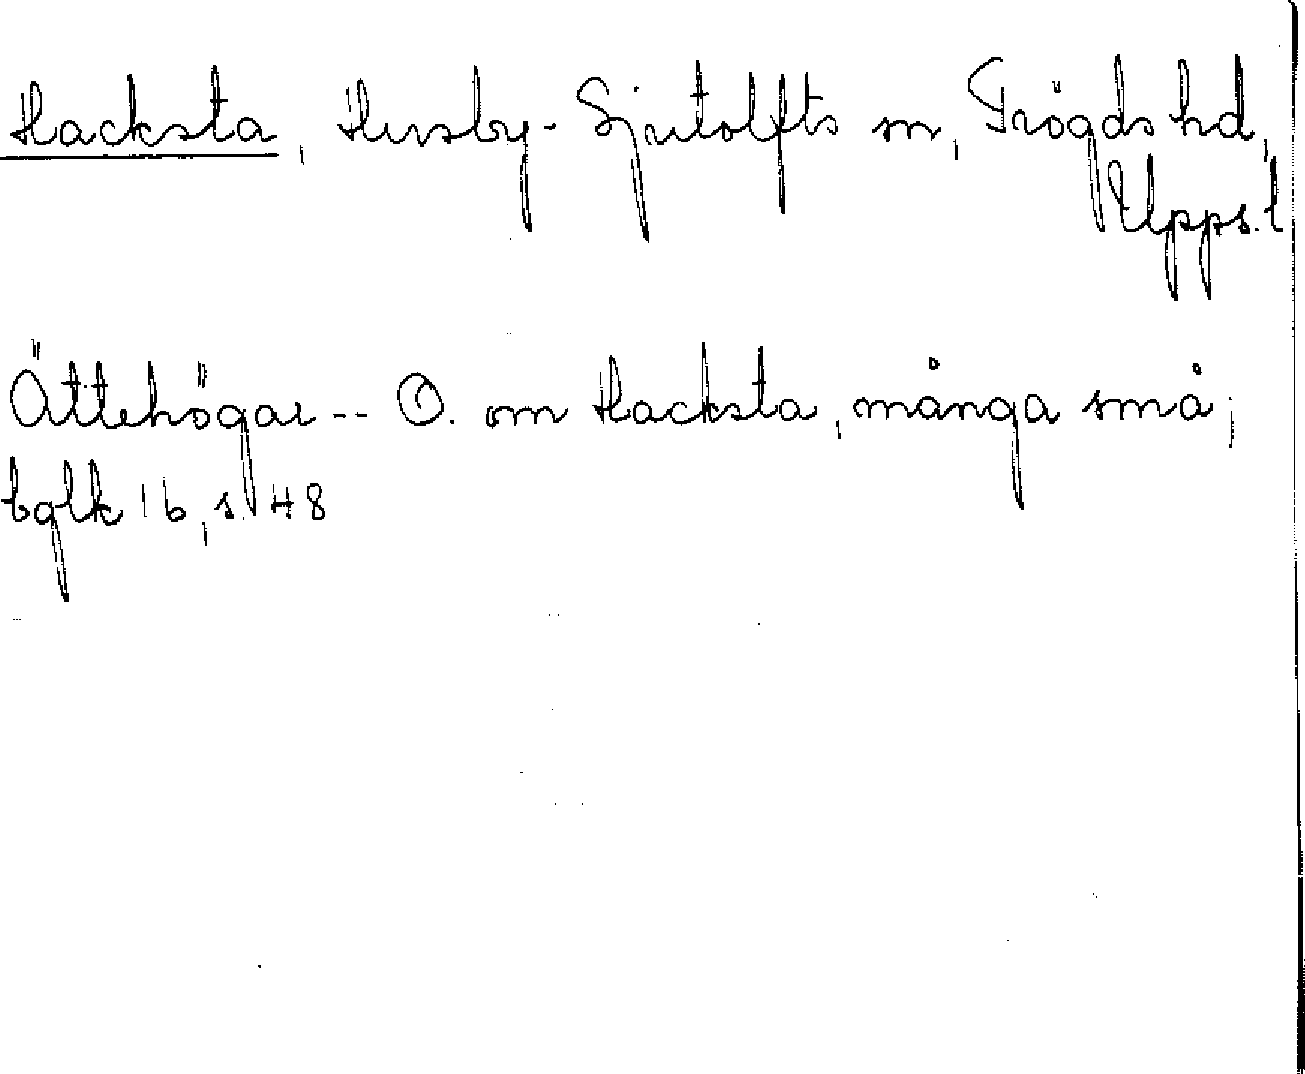 Hacksta, Husby-Sjutolfts sn, Trögds hd,
Upps. l
Ättehögar -- O. om Hacksta, många små;
bglk 16, s. 48